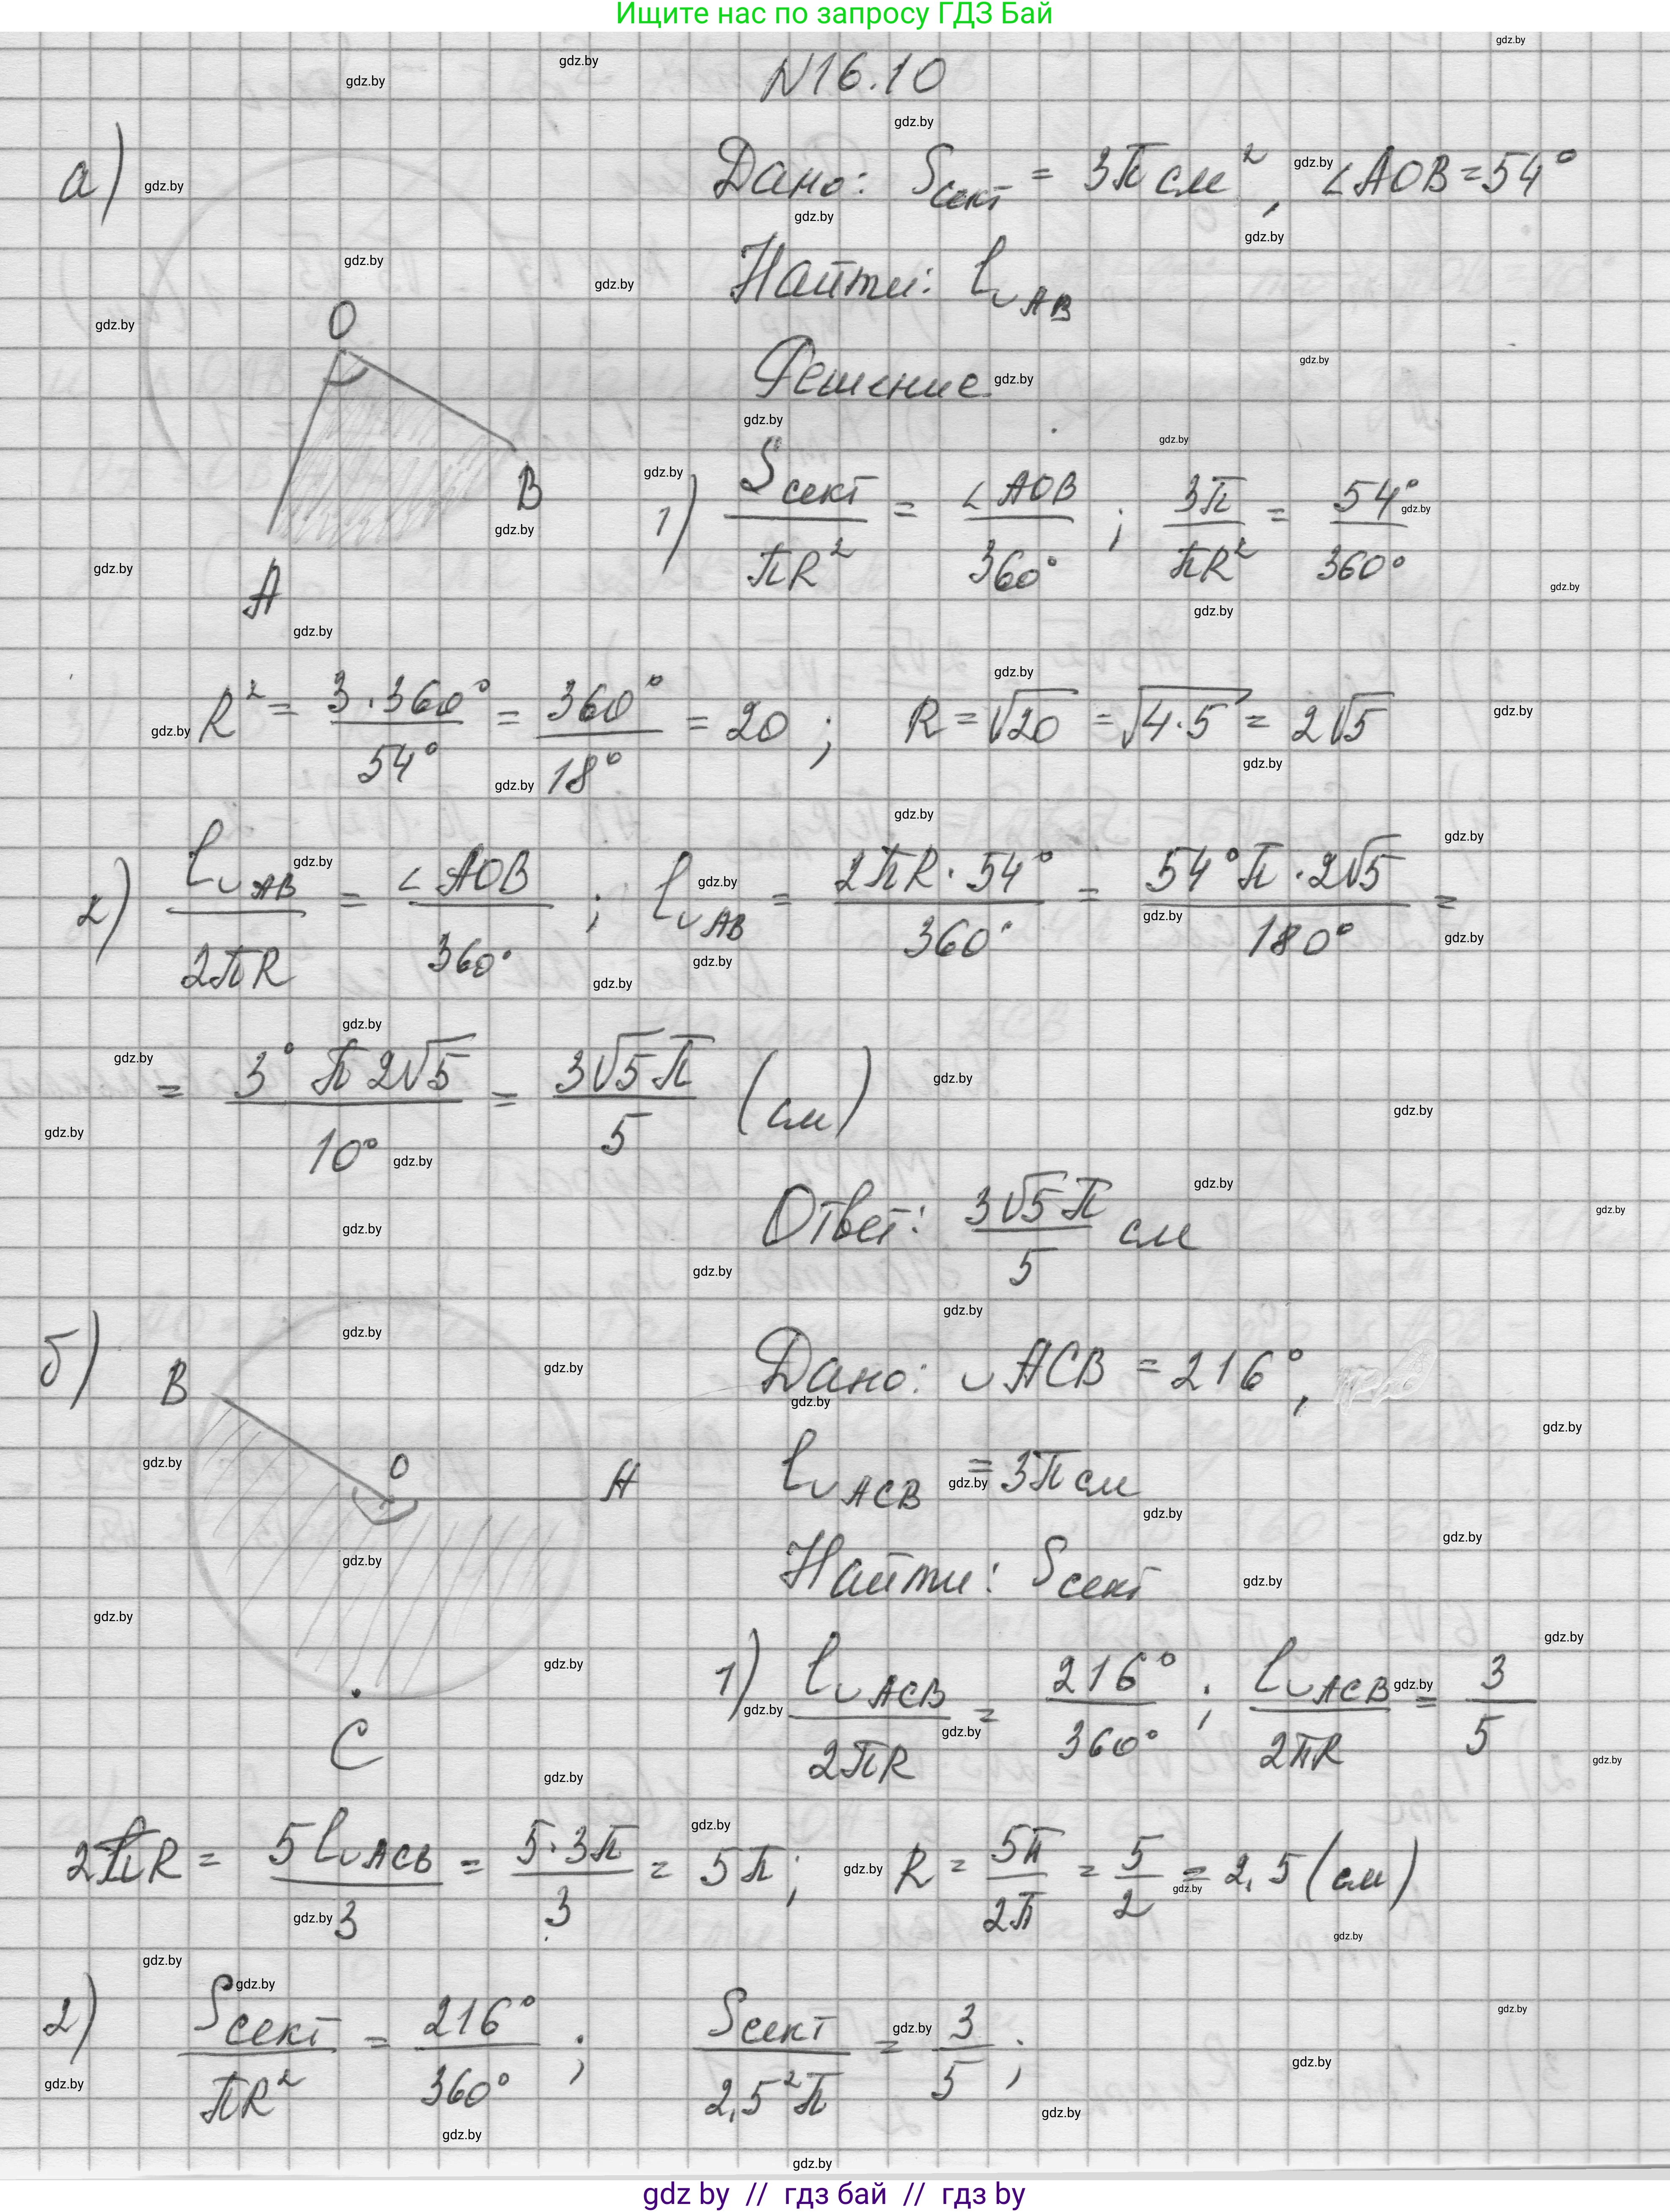 Ищите нас по запросу ГДЗ Бай
N16.10
а)
Дано: Sсект = 3π см², ∠AOB = 54°
Найти: l◡AB
Решение
O
B
A
1) Sсект/πR² = ∠AOB/360° ; 3π/πR² = 54°/360°
R² = 3·360°/54° = 360°/18° = 20 ; R = √20 = √4·5 = 2√5
2) l◡AB/2πR = ∠AOB/360° ; l◡AB = 2πR·54°/360° = 54°π·2√5/180° =
= 3°π2√5/10° = 3√5π/5 (см)
Ответ: 3√5π/5 см
б)
B
O
A
C
Дано: ◡ACB = 216°,
l◡ACB = 3π см
Найти: Sсект
1) l◡ACB/2πR = 216°/360° ; l◡ACB/2πR = 3/5
2πR = 5l◡ACB/3 = 5·3π/3 = 5π ; R = 5π/2π = 5/2 = 2,5 (см)
2) Sсект/πR² = 216°/360° ; Sсект/2,5²π = 3/5 ;
gdz.by
gdz by // гдз бай // гдз by